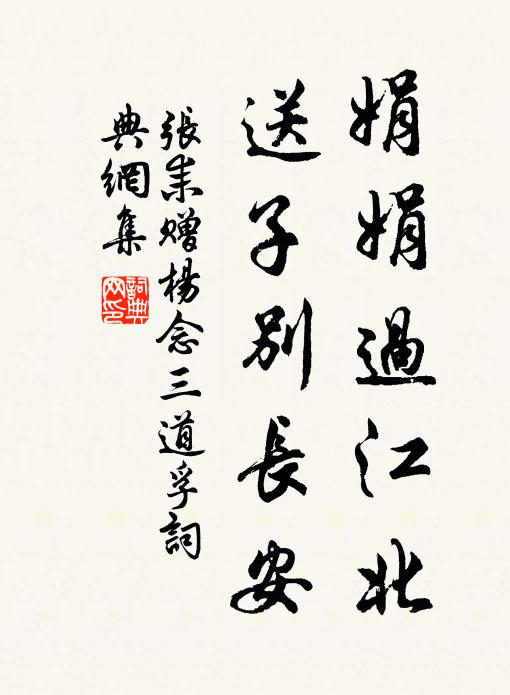 娟娟過江北
送子別長安
張耒贈楊念三道孚詞
典網集
詞典
网印